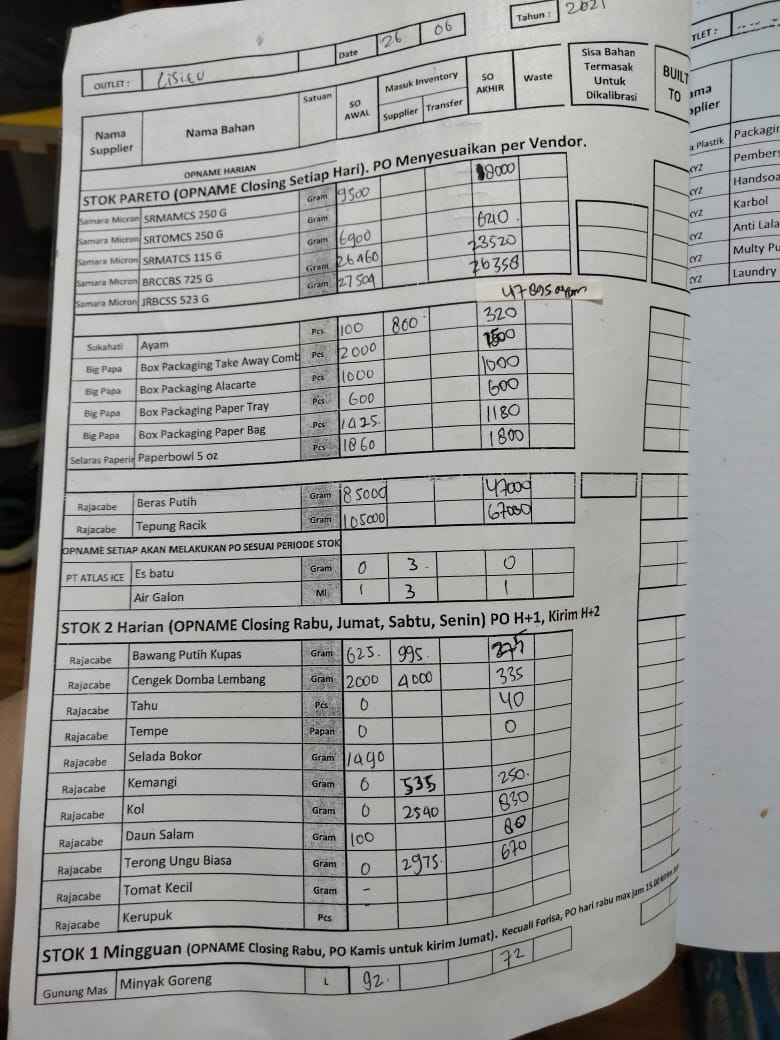 Tahun : 2021
Date 26 06
OUTLET : CISIEU
Nama Supplier Nama Bahan Satuan SO AWAL Masuk Inventory Supplier Transfer SO AKHIR Waste Sisa Bahan Termasak Untuk Dikalibrasi BUILT TO
OPNAME HARIAN
STOK PARETO (OPNAME Closing Setiap Hari). PO Menyesuaikan per Vendor.
Samara Micron SRMAMCS 250 G Gram 9500 8000
Samara Micron SRTOMCS 250 G Gram
Samara Micron SRMATCS 115 G Gram 6900 6210
Samara Micron BRCCBS 725 G Gram 26460 23520
Samara Micron JRBCSS 523 G Gram 27509 26358
47895 ayam
Sukahati Ayam Pcs 100 800 320
Big Papa Box Packaging Take Away Comb Pcs 2000 1500
Big Papa Box Packaging Alacarte Pcs 1000 1000
Big Papa Box Packaging Paper Tray Pcs 600 600
Big Papa Box Packaging Paper Bag Pcs 1425 1180
Selaras Paperin Paperbowl 5 oz Pcs 1860 1800
Rajacabe Beras Putih Gram 85000 47000
Rajacabe Tepung Racik Gram 105000 67000
OPNAME SETIAP AKAN MELAKUKAN PO SESUAI PERIODE STOK
PT ATLAS ICE Es batu Gram 0 3 0
Air Galon Ml 1 3 1
STOK 2 Harian (OPNAME Closing Rabu, Jumat, Sabtu, Senin) PO H+1, Kirim H+2
Rajacabe Bawang Putih Kupas Gram 625. 995.
Rajacabe Cengek Domba Lembang Gram 2000 4000 335
Rajacabe Tahu Pcs 0 40
Rajacabe Tempe Papan 0 0
Rajacabe Selada Bokor Gram 1490
Rajacabe Kemangi Gram 0 535 250.
Rajacabe Kol Gram 0 2540 830
Rajacabe Daun Salam Gram 100 80
Rajacabe Terong Ungu Biasa Gram 0 2975. 670
Rajacabe Tomat Kecil Gram -
Rajacabe Kerupuk Pcs
STOK 1 Mingguan (OPNAME Closing Rabu, PO Kamis untuk kirim Jumat). Kecuali Forisa, PO hari rabu max jam 15.00 kirim
Gunung Mas Minyak Goreng L 92. 72
TLET :
ama
pplier
a Plastik Packagin
XYZ Pembers
XYZ Handsoa
XYZ Karbol
XYZ Anti Lala
XYZ Multy Pu
XYZ Laundry